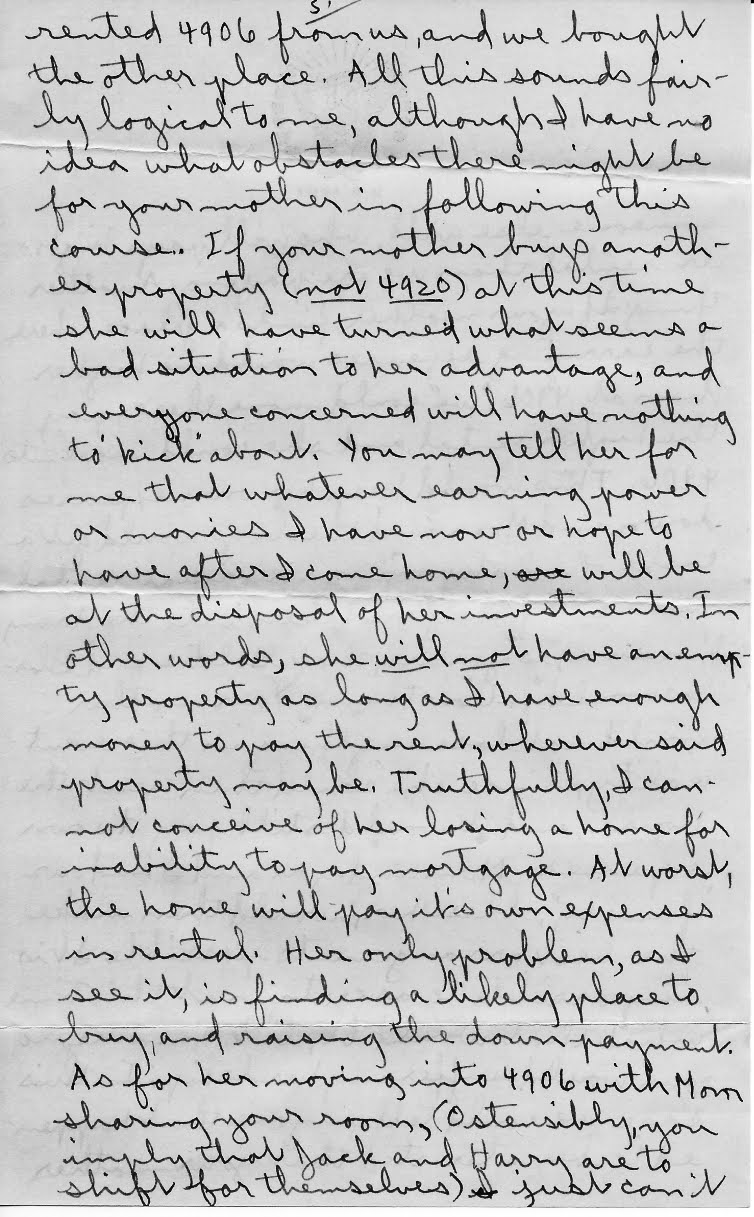 5'
rented 4906 from us, and we bought
the other place. All this sounds fair-
ly logical to me, although I have no
idea what obstacles there might be
for your mother in following this
course. If your mother buys anoth-
er property (not 4920) at this time
she will have turned what seems a
bad situation to her advantage, and
everyone concerned will have nothing
to "kick" about. You may tell her for
me that whatever earning power
or monies I have now or hope to
have after I come home, are will be
at the disposal of her investments. In
other words, she will not have an emp-
ty property as long as I have enough
money to pay the rent, wherever said
property may be. Truthfully, I can-
not conceive of her losing a home for
inability to pay mortgage. At worst,
the home will pay it's own expenses
in rental. Her only problem, as I
see it, is finding a likely place to
buy, and raising the down payment.
As for her moving into 4906 with Mom
sharing your room, (Ostensibly, you
imply that Jack and Harry are to
shift for themselves) I just can't